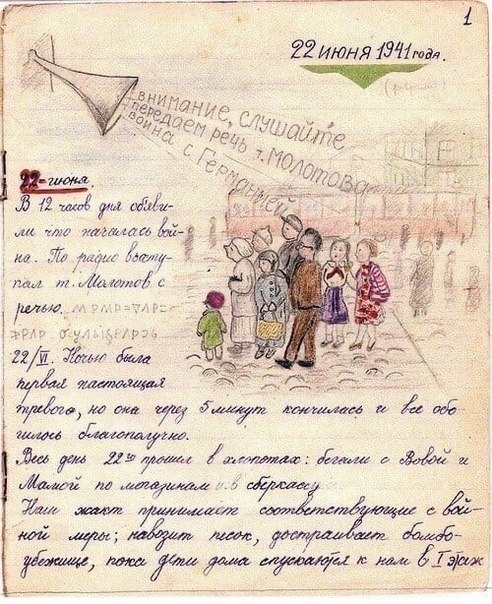 1
22 июня 1941 года.
внимание, слушайте
передаем речь т. Молотова
война с Германией
22=июня
В 12 часов дня обяви-
ли что началась вой-
на. По радио высту-
пал т. Молотов с
речью.
22/VI. Ночью была
первая настоящая
тревога, но она через 5 минут кончилась и все обо-
шлось благополучно.
Весь день 22го прошел в хлопотах: бегали с Вовой и
Мамой по магазинам и в сберкассу.
Наш жакт принимает соответствующие с вой-
ной меры; навозит песок, достраивает бомбо-
убежище, пока дети дома спускаются к нам в I этаж